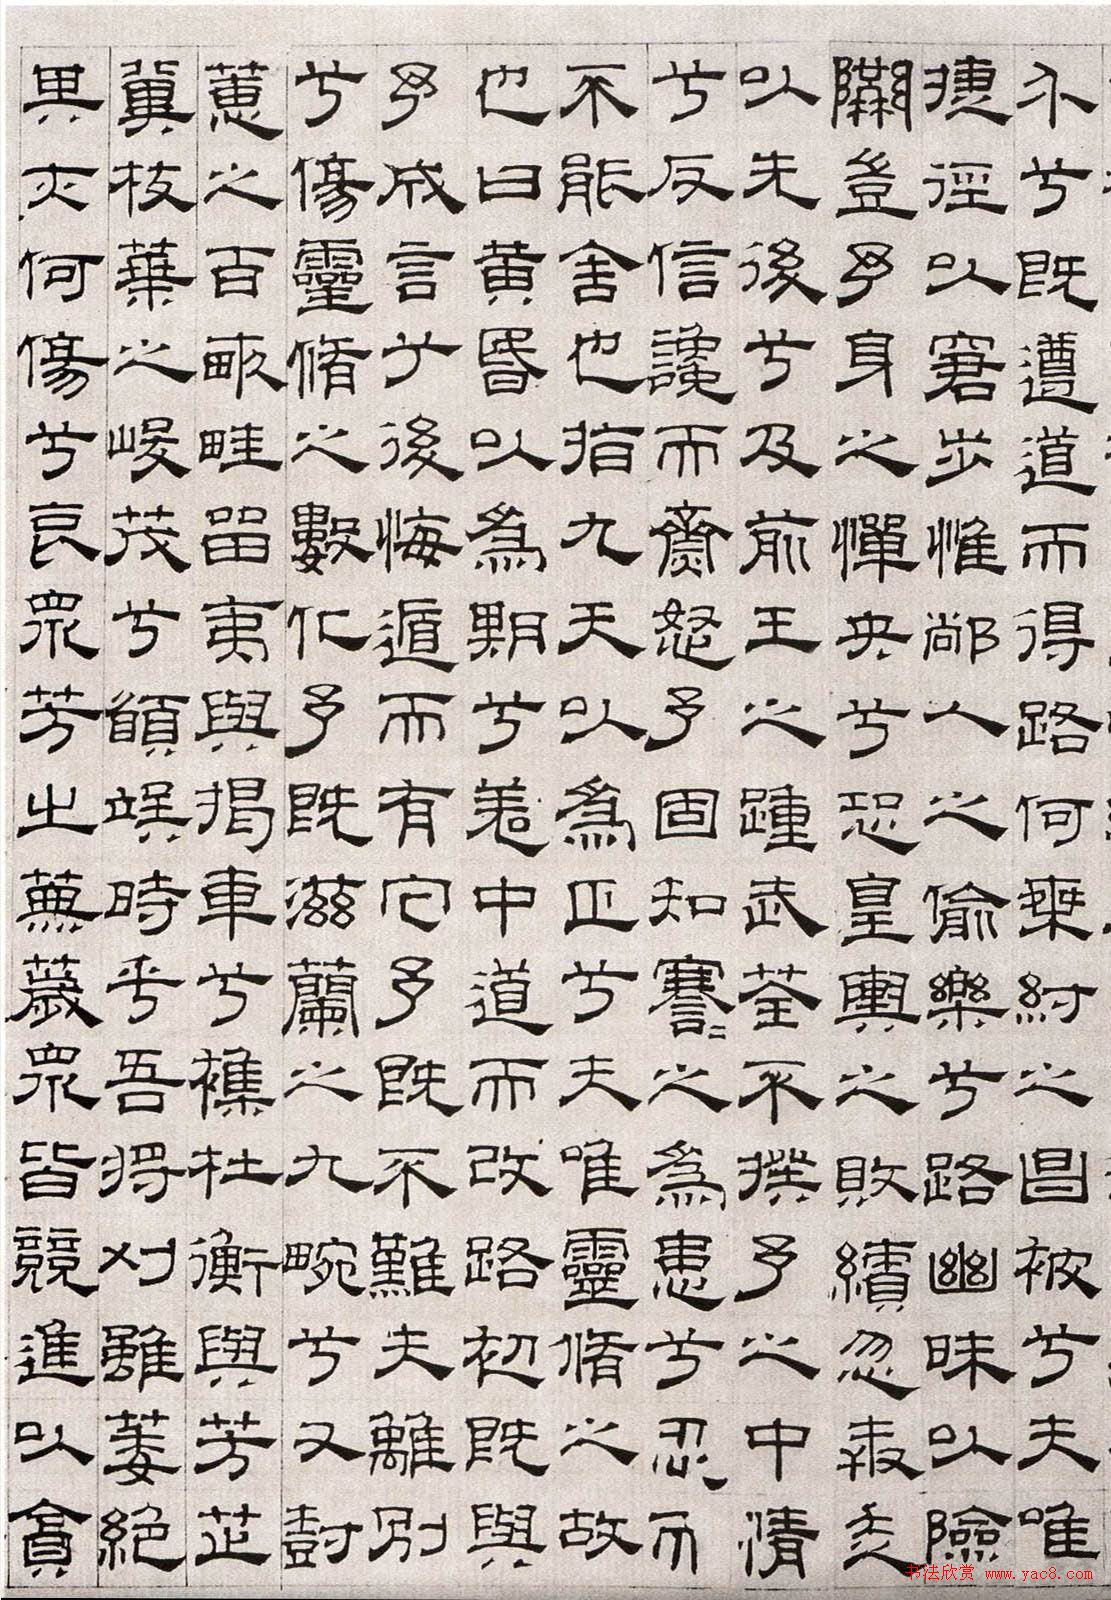 介兮既遵道而得路何桀紂之昌被兮夫唯
捷徑以窘步惟䣊人之偷樂兮路幽昧以險
隘豈予身之憚央兮恐皇輿之敗績忽奔走
以先後兮及前王之踵武荃不揆予之中情
兮反信讒而齌怒予固知謇〻之為患兮忍而
不能舍也指九天以為正兮夫唯靈脩之故
也曰黃昏以為期兮羌中道而改路初既與
予成言兮後悔遁而有它予既不難夫離別
兮傷靈脩之數化予既滋蘭之九畹兮又樹
蕙之百畝畦留夷與揭車兮襍杜衡與芳芷
冀枝葉之峻茂兮願竢時乎吾將刈雖萎絕
其亦何傷兮哀眾芳之蕪薉眾皆競進以貪
书法欣赏 www.yac8.com